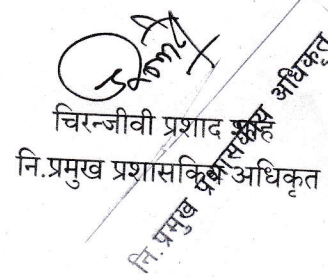 चिरन्जीवी प्रशाद
नि.प्रमुख प्रशासकिय अधिकृत
नि.प्रमुख प्रशासकीय अधिकृत